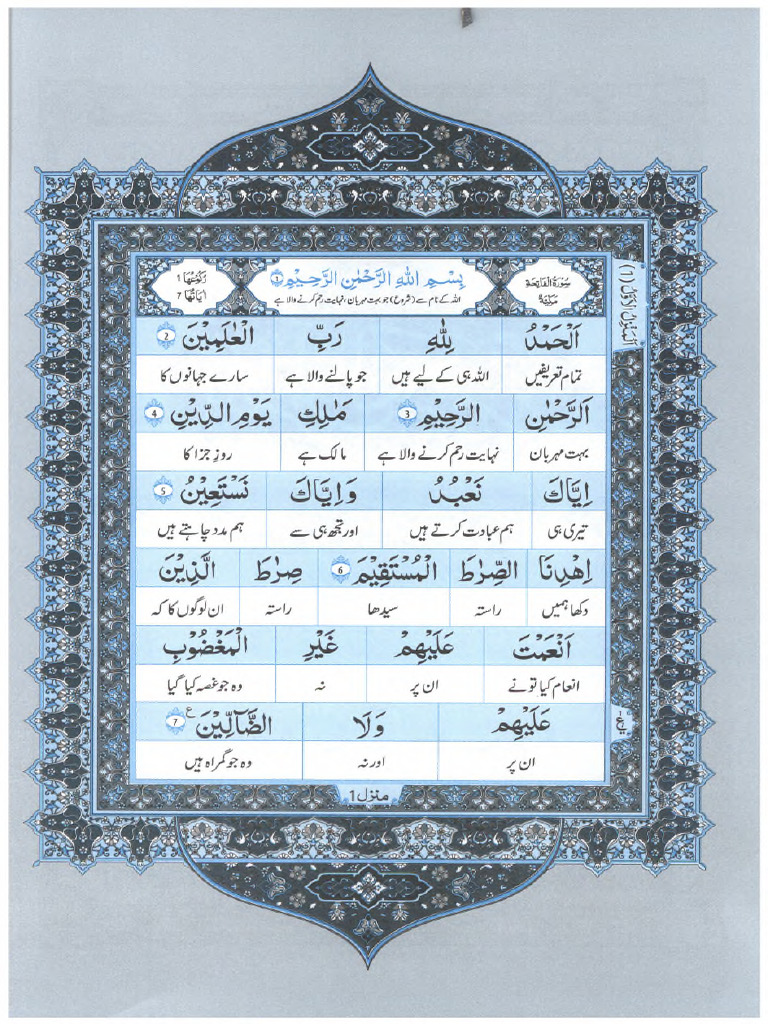 سُوْرَةُ الْفَاتِحَةِ
بِسْمِ اللّٰهِ الرَّحْمٰنِ الرَّحِيْمِ ١
رُكُوْعُهَا 1
اللہ کے نام سے (شروع) جو بہت مہربان، نہایت رحم کرنے والا ہے
اٰيَاتُهَا 7
اَلْحَمْدُ لِلّٰهِ رَبِّ الْعٰلَمِيْنَ 2
تمام تعریفیں اللہ ہی کے لیے ہیں جو پالنے والا ہے سارے جہانوں کا
الرَّحْمٰنِ الرَّحِيْمِ 3 مٰلِكِ يَوْمِ الدِّيْنِ 4
بہت مہربان نہایت رحم کرنے والا ہے مالک ہے روزِ جزا کا
اِيَّاكَ نَعْبُدُ وَاِيَّاكَ نَسْتَعِيْنُ 5
تیری ہی ہم عبادت کرتے ہیں اور تجھ ہی سے ہم مدد چاہتے ہیں
اِهْدِنَا الصِّرٰطَ الْمُسْتَقِيْمَ 6 صِرٰطَ الَّذِيْنَ
دکھا ہمیں راستہ سیدھا راستہ ان لوگوں کا کہ
اَنْعَمْتَ عَلَيْهِمْ غَيْرِ الْمَغْضُوْبِ
انعام کیا تونے ان پر نہ وہ جو غصہ کیا گیا
عَلَيْهِمْ وَلَا الضَّآلِّيْنَ ع 7
ان پر اور نہ وہ جو گمراہ ہیں
منزل 1